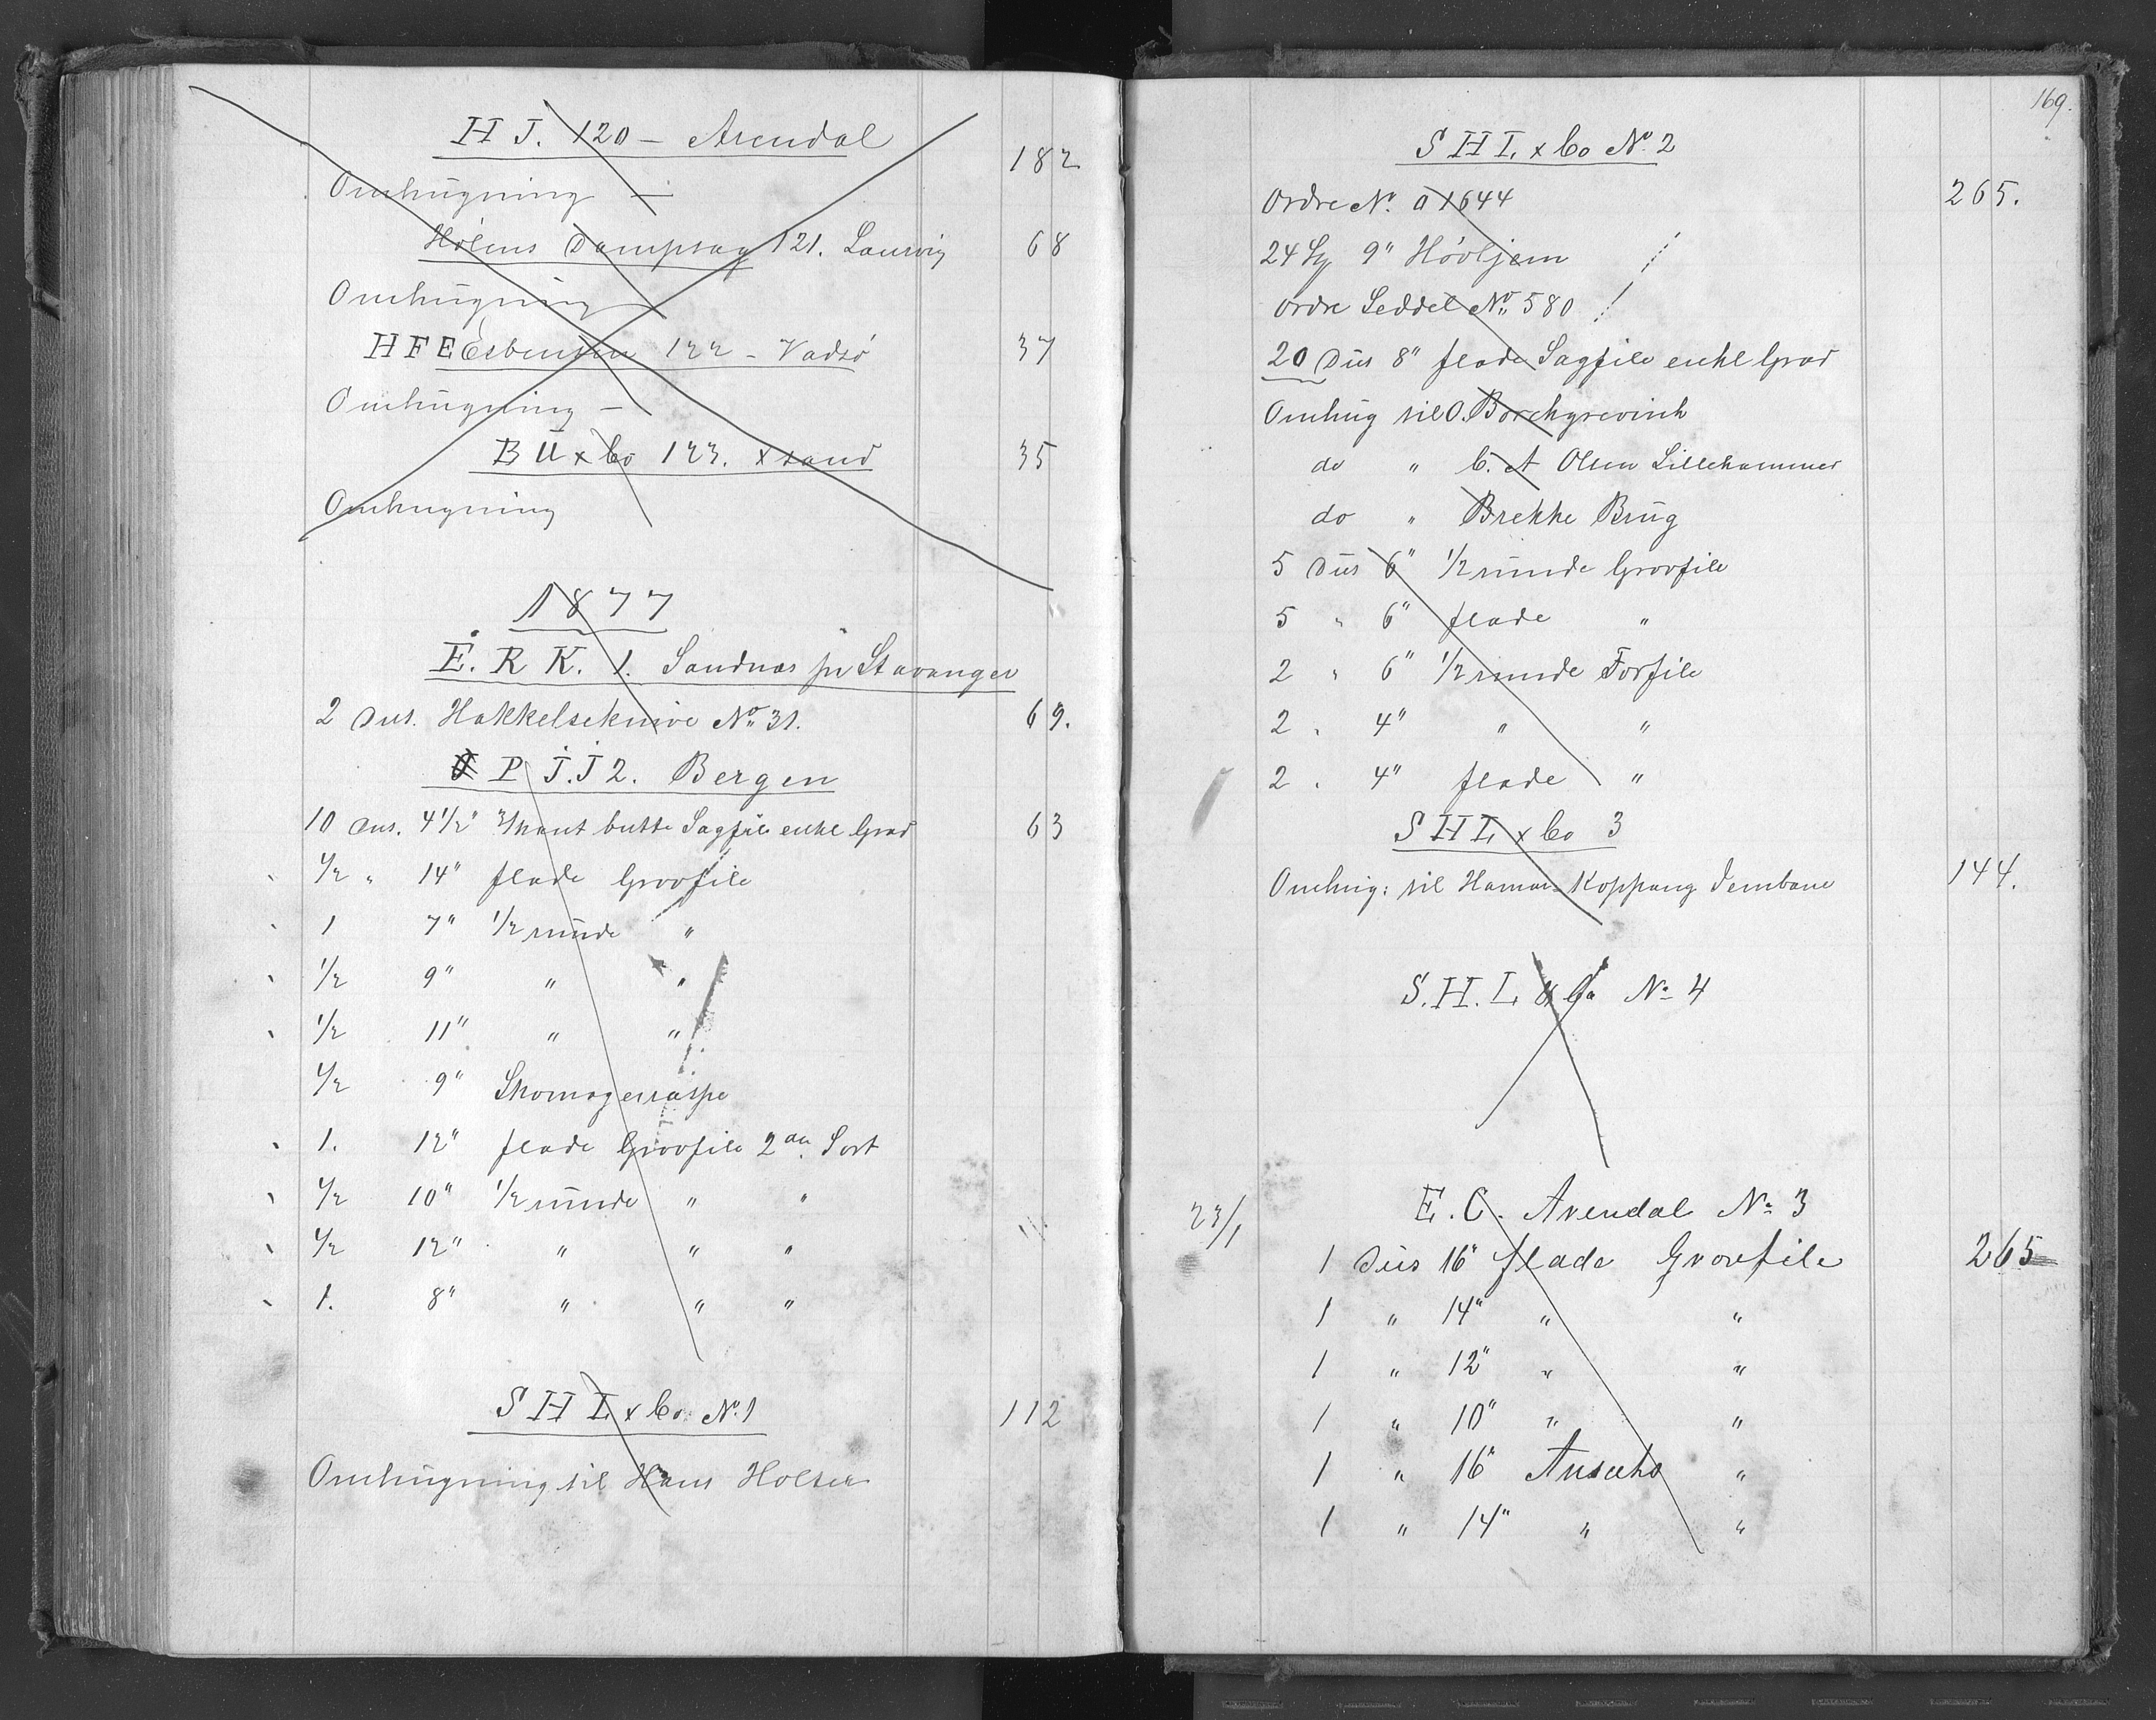 H J. 120 – Arendal 182
Omhugning –
Holens Dampsag 121. Laurvig 68
Omhugning
H F E Esbensen 122 – Vadsø 37
Omhugning –
B U x Co 123. Xsand 35
Omhugning
1877
E. R K. 1. Sandnæs pr Stavanger
2 Dus. Hakkelseknive No 31. 69.
P J. J 2. Bergen
10 Dus. 4 1/2" 3/kant butte Sagfile enkl Grad 63
1/2 " 14" flade Grovfile
1 7" 1/2 runde "
1/2 9" " "
1/2 11" " "
1/2 9" Skomagerraspe
1. 12" flade Grovfile 2den Sort
1/2 10" 1/2 runde " "
1/2 12" " " "
1. 8" " " "
S H L x Co No 1 112
Omhugning til Hans Holter
169.
S H L x Co No 2
Ordre No. a 1644 265.
24 9" Høvljern
Ordre Seddel No 580
20 Dus 8" flade Sagfile enkl Grad
Omhug til O. Borchgrevink
do " C. A Olsen Lillehammer
do " Brekke Brug
5 Dus 6" 1/2 runde Grovfile
5 " 6" flade "
2 " 6" 1/2 runde Forfile
2 " 4" " "
2 " 4" flade "
S H L x Co 3
Omhug: til Hamar Koppang Jernbane 144.
S. H. L & Co No 4
23/1 E. C. Arendal No 3
1 Dus 16" flade Grovfile 265
1 " 14" " "
1 " 12" " "
1 " 10" " "
1 " 16" Ansats "
1 " 14" " "